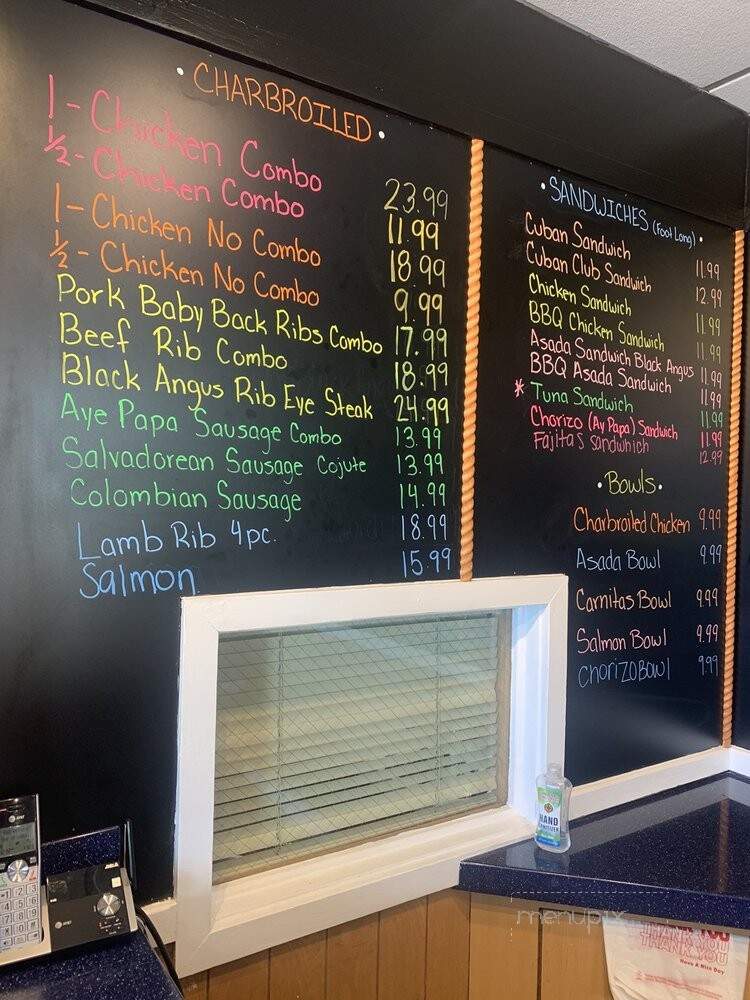 • CHARBROILED •
1 - Chicken Combo 23.99
1/2 - Chicken Combo 11.99
1 - Chicken No Combo 18.99
1/2 - Chicken No Combo 9.99
Pork Baby Back Ribs Combo 17.99
Beef Rib Combo 18.99
Black Angus Rib Eye Steak 24.99
Aye Papa Sausage Combo 13.99
Salvadorean Sausage Cojute 13.99
Colombian Sausage 14.99
Lamb Rib 4pc. 18.99
Salmon 15.99
• SANDWICHES (Foot Long) •
Cuban Sandwich 11.99
Cuban Club Sandwich 12.99
Chicken Sandwich 11.99
BBQ Chicken Sandwich 11.99
Asada Sandwich Black Angus 11.99
BBQ Asada Sandwich 11.99
* Tuna Sandwich 11.99
Chorizo (Ay Papa) Sandwich 11.99
Fajitas Sandwhich 12.99
• BOWLS •
Charbroiled Chicken 9.99
Asada Bowl 9.99
Carnitas Bowl 9.99
Salmon Bowl 9.99
Chorizo Bowl 9.99
HAND
SANITIZER
AT&T
at&t
menupix
THANK YOU
THANK YOU
Have A Nice Day